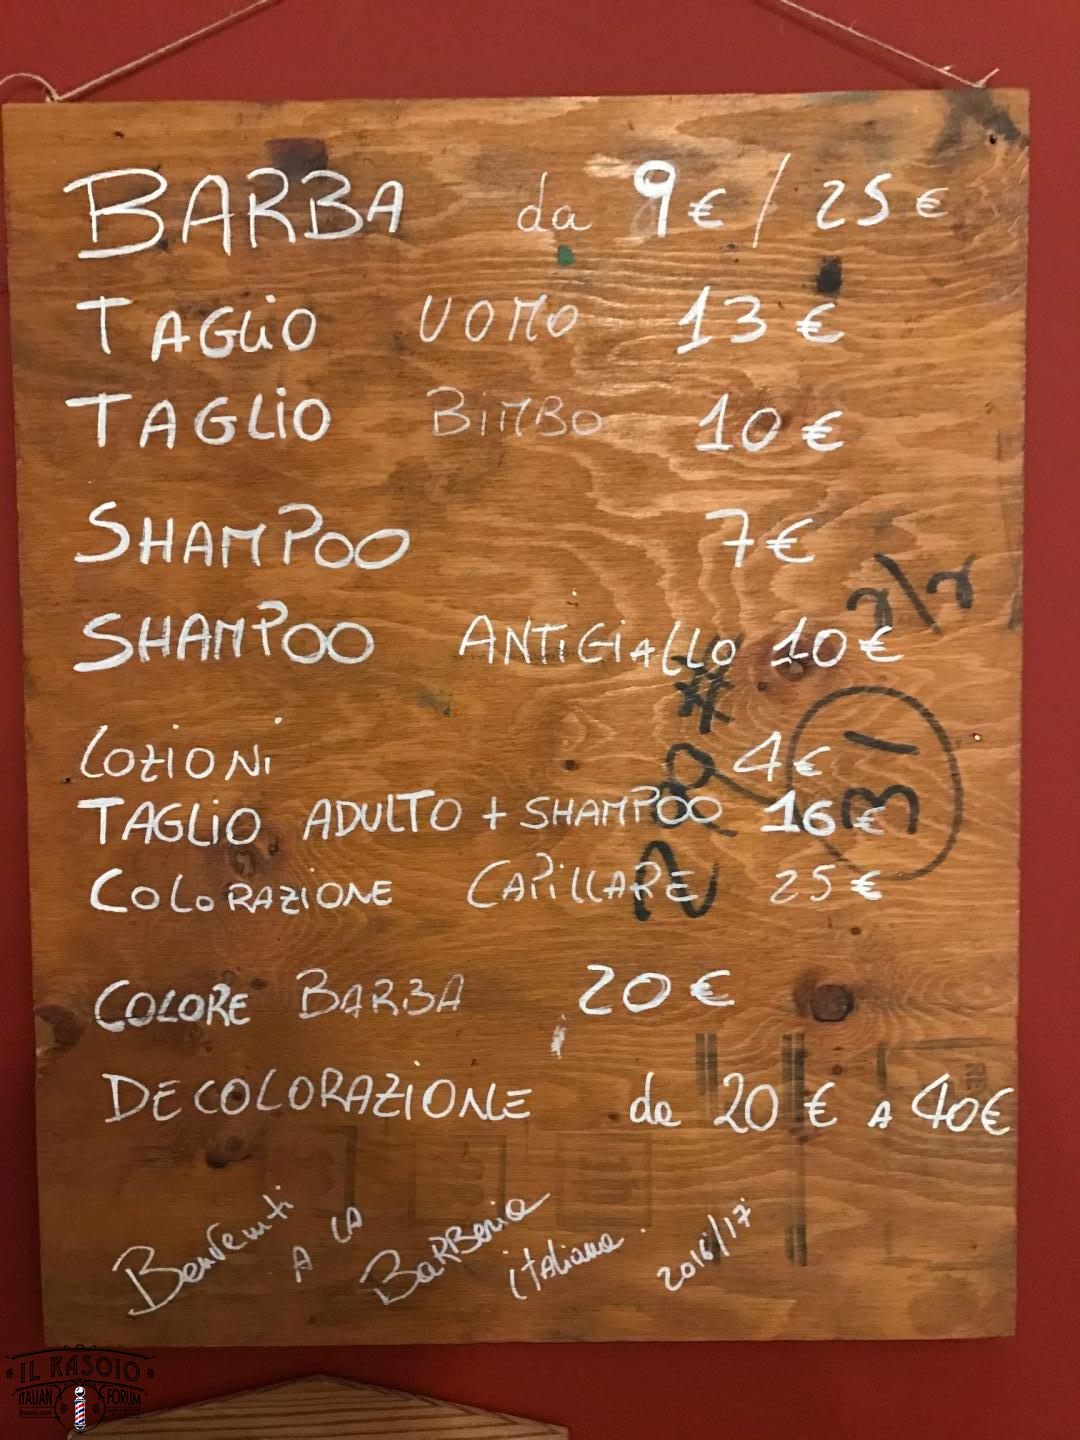 BARBA da 9€ / 25€
TAGLIO UOMO 13€
TAGLIO BIMBO 10€
SHAMPOO 7€
SHAMPOO ANTIGIALLO 10€
LOZIONI 4€
TAGLIO ADULTO + SHAMPOO 16€
COLORAZIONE CAPILLARE 25€
COLORE BARBA 20€
DECOLORAZIONE da 20€ A 40€
Benvenuti A LA BARBeria italiana. 2016/17
31
IL RASOIO
ITALIAN FORUM